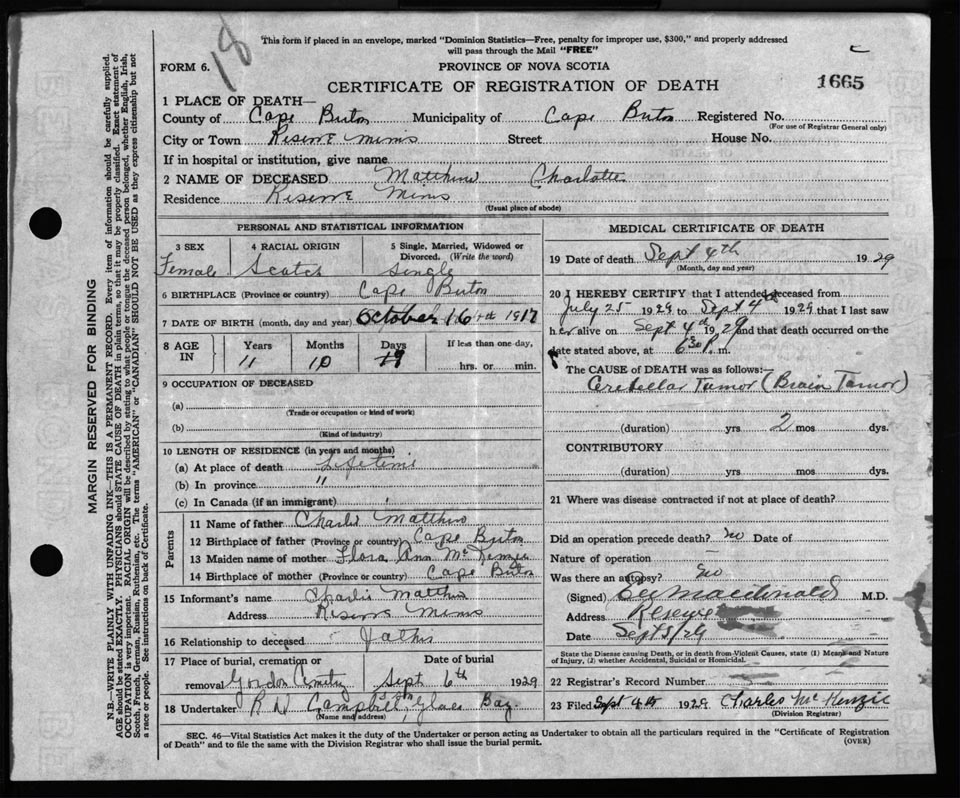 18
This form if placed in an envelope, marked "Dominion Statistics—Free, penalty for improper use, $300," and properly addressed
will pass through the Mail "FREE"
FORM 6. PROVINCE OF NOVA SCOTIA
CERTIFICATE OF REGISTRATION OF DEATH 1665
1 PLACE OF DEATH—
County of Cape Breton Municipality of Cape Breton Registered No.
(For use of Registrar General only)
City or Town Reserve Mines Street House No.
If in hospital or institution, give name
2 NAME OF DECEASED Matthew Charlotte
Residence Reserve Mines
(Usual place of abode)
PERSONAL AND STATISTICAL INFORMATION
3 SEX 4 RACIAL ORIGIN 5 Single, Married, Widowed or Divorced. (Write the word)
Female Scotch Single
6 BIRTHPLACE (Province or country) Cape Breton
7 DATE OF BIRTH (month, day and year) October 16th 1917
8 AGE IN Years Months Days If less than one day,
11 10 19 hrs. or min.
9 OCCUPATION OF DECEASED
(a)
(Trade or occupation or kind of work)
(b)
(Kind of industry)
10 LENGTH OF RESIDENCE (in years and months)
(a) At place of death Lifetime
(b) In province "
(c) In Canada (if an immigrant)
Parents
11 Name of father Charlie Matthew
12 Birthplace of father (Province or country) Cape Breton
13 Maiden name of mother Flora Ann McKenzie
14 Birthplace of mother (Province or country) Cape Breton
15 Informant's name Charlie Matthew
Address Reserve Mines
16 Relationship to deceased Father
17 Place of burial, cremation or Date of burial
removal Gordon Cemetry Sept 6th 1929
18 Undertaker R N Campbell, Glace Bay
(Name and address)
MEDICAL CERTIFICATE OF DEATH
19 Date of death Sept 4th 1929
(Month, day and year)
20 I HEREBY CERTIFY that I attended deceased from
July 25 1929 to Sept 4th 1929 that I last saw
her alive on Sept 4th 1929 and that death occurred on the
date stated above, at 6 30 P. m.
The CAUSE of DEATH was as follows:—
Cerebellar Tumor (Brain Tumor)
(duration) yrs 2 mos dys.
CONTRIBUTORY
(duration) yrs. mos dys.
21 Where was disease contracted if not at place of death?
Did an operation precede death? no Date of
Nature of operation —
Was there an autopsy? no
(Signed) Macdonald M.D.
Address Reserve
Date Sept 5/29
State the Disease causing Death, or in death from Violent Causes, state (1) Means and Nature
of Injury, (2) whether Accidental, Suicidal or Homicidal.
22 Registrar's Record Number
23 Filed Sept 4th 1929 Charles McKenzie
(Division Registrar)
SEC. 46—Vital Statistics Act makes it the duty of the Undertaker or person acting as Undertaker to obtain all the particulars required in the "Certificate of Registration
of Death" and to file the same with the Division Registrar who shall issue the burial permit. (OVER)
MARGIN RESERVED FOR BINDING
N.B.—WRITE PLAINLY WITH UNFADING INK—THIS IS A PERMANENT RECORD. Every item of information should be carefully supplied.
AGE should be stated EXACTLY. PHYSICIANS should STATE CAUSE OF DEATH in plain terms, so that it may be properly classified. Exact statement of
OCCUPATION is very important. RACIAL ORIGIN will be described by stating to what people or tongue the deceased person belonged, whether English, Irish,
Scotch, French, German, Russian, Ruthenian, etc. The terms "AMERICAN" or "CANADIAN" SHOULD NOT BE USED as they express citizenship but not
a race or people. See instructions on back of Certificate.